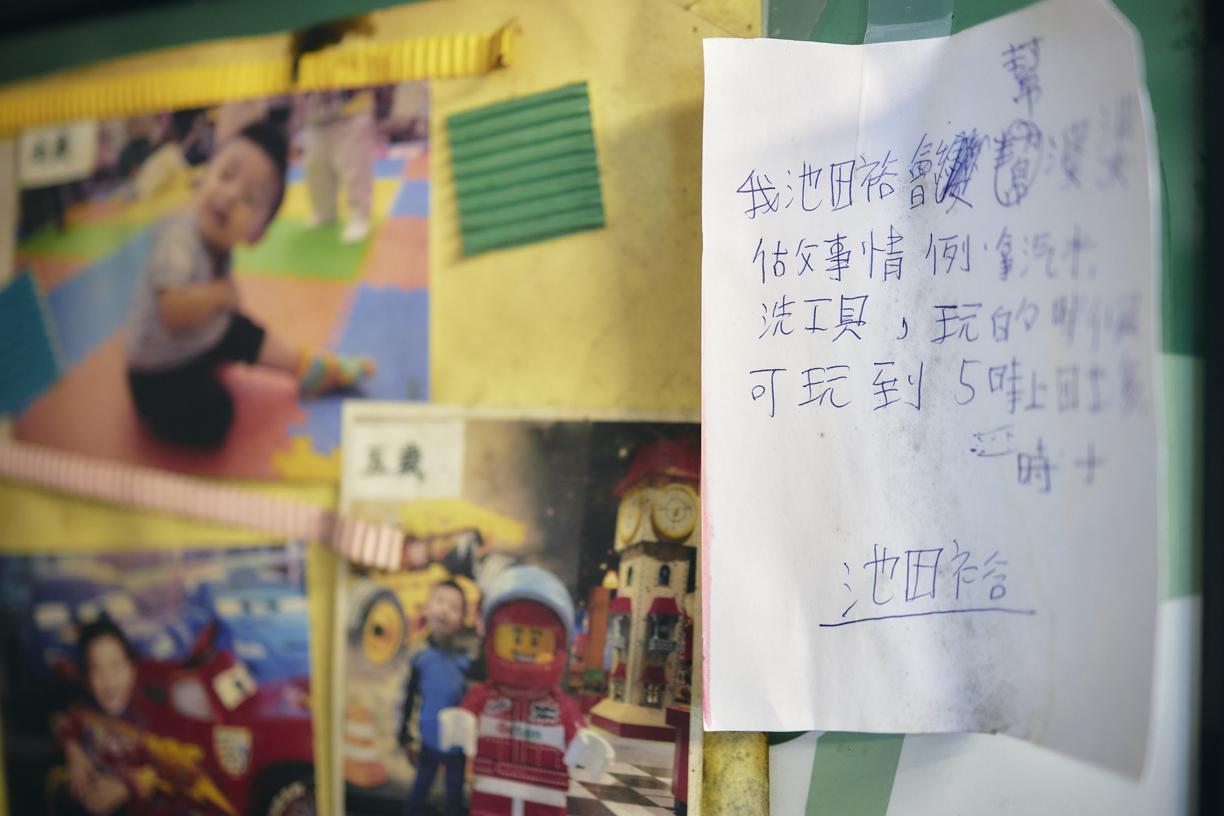 五歲
幫
我池田裕會幫婆婆
做事情例拿汽水
洗工具,玩的時候
可玩到5時上回
時十
池田裕